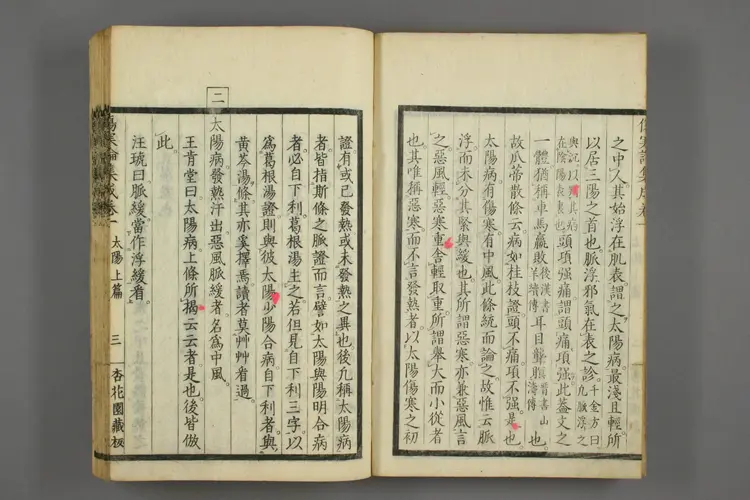 之中人其始浮在肌表謂之太陽病最淺且輕所
以居三陽之首也脈浮邪氣在表之診千金方曰九脈浮之
與沉以其病在陰陽表裏也頭項強痛謂頭痛項強此葢文之
一體猶稱車馬羸敗後漢書羊續傳耳目聾瞶晉書山濤傳也
故瓜蒂散條云病如桂枝證頭不痛項不強是也
太陽病有傷寒有中風此條統而論之故惟云脈
浮而未分其緊與緩也其所謂惡寒亦兼惡風言
之惡風輕惡寒重舍輕取重所謂舉大而小從者
也其唯稱惡寒而不言發熱者以太陽傷寒之初
證有或已發熱或未發熱之異也後凡稱太陽病
者皆指斯條之脈證而言譬如太陽與陽明合病
者必自下利葛根湯主之若但見自下利三字以
爲葛根湯證則與彼太陽少陽合病自下利者與
黃芩湯條其亦奚擇焉讀者莫艸艸看過
二
太陽病發熱汗出惡風脈緩者名爲中風
王肯堂曰太陽病上條所揭云云者是也後皆倣
此
汪琥曰脈緩當作浮緩看
傷寒論集成卷一 太陽上篇 三 杏花園藏板